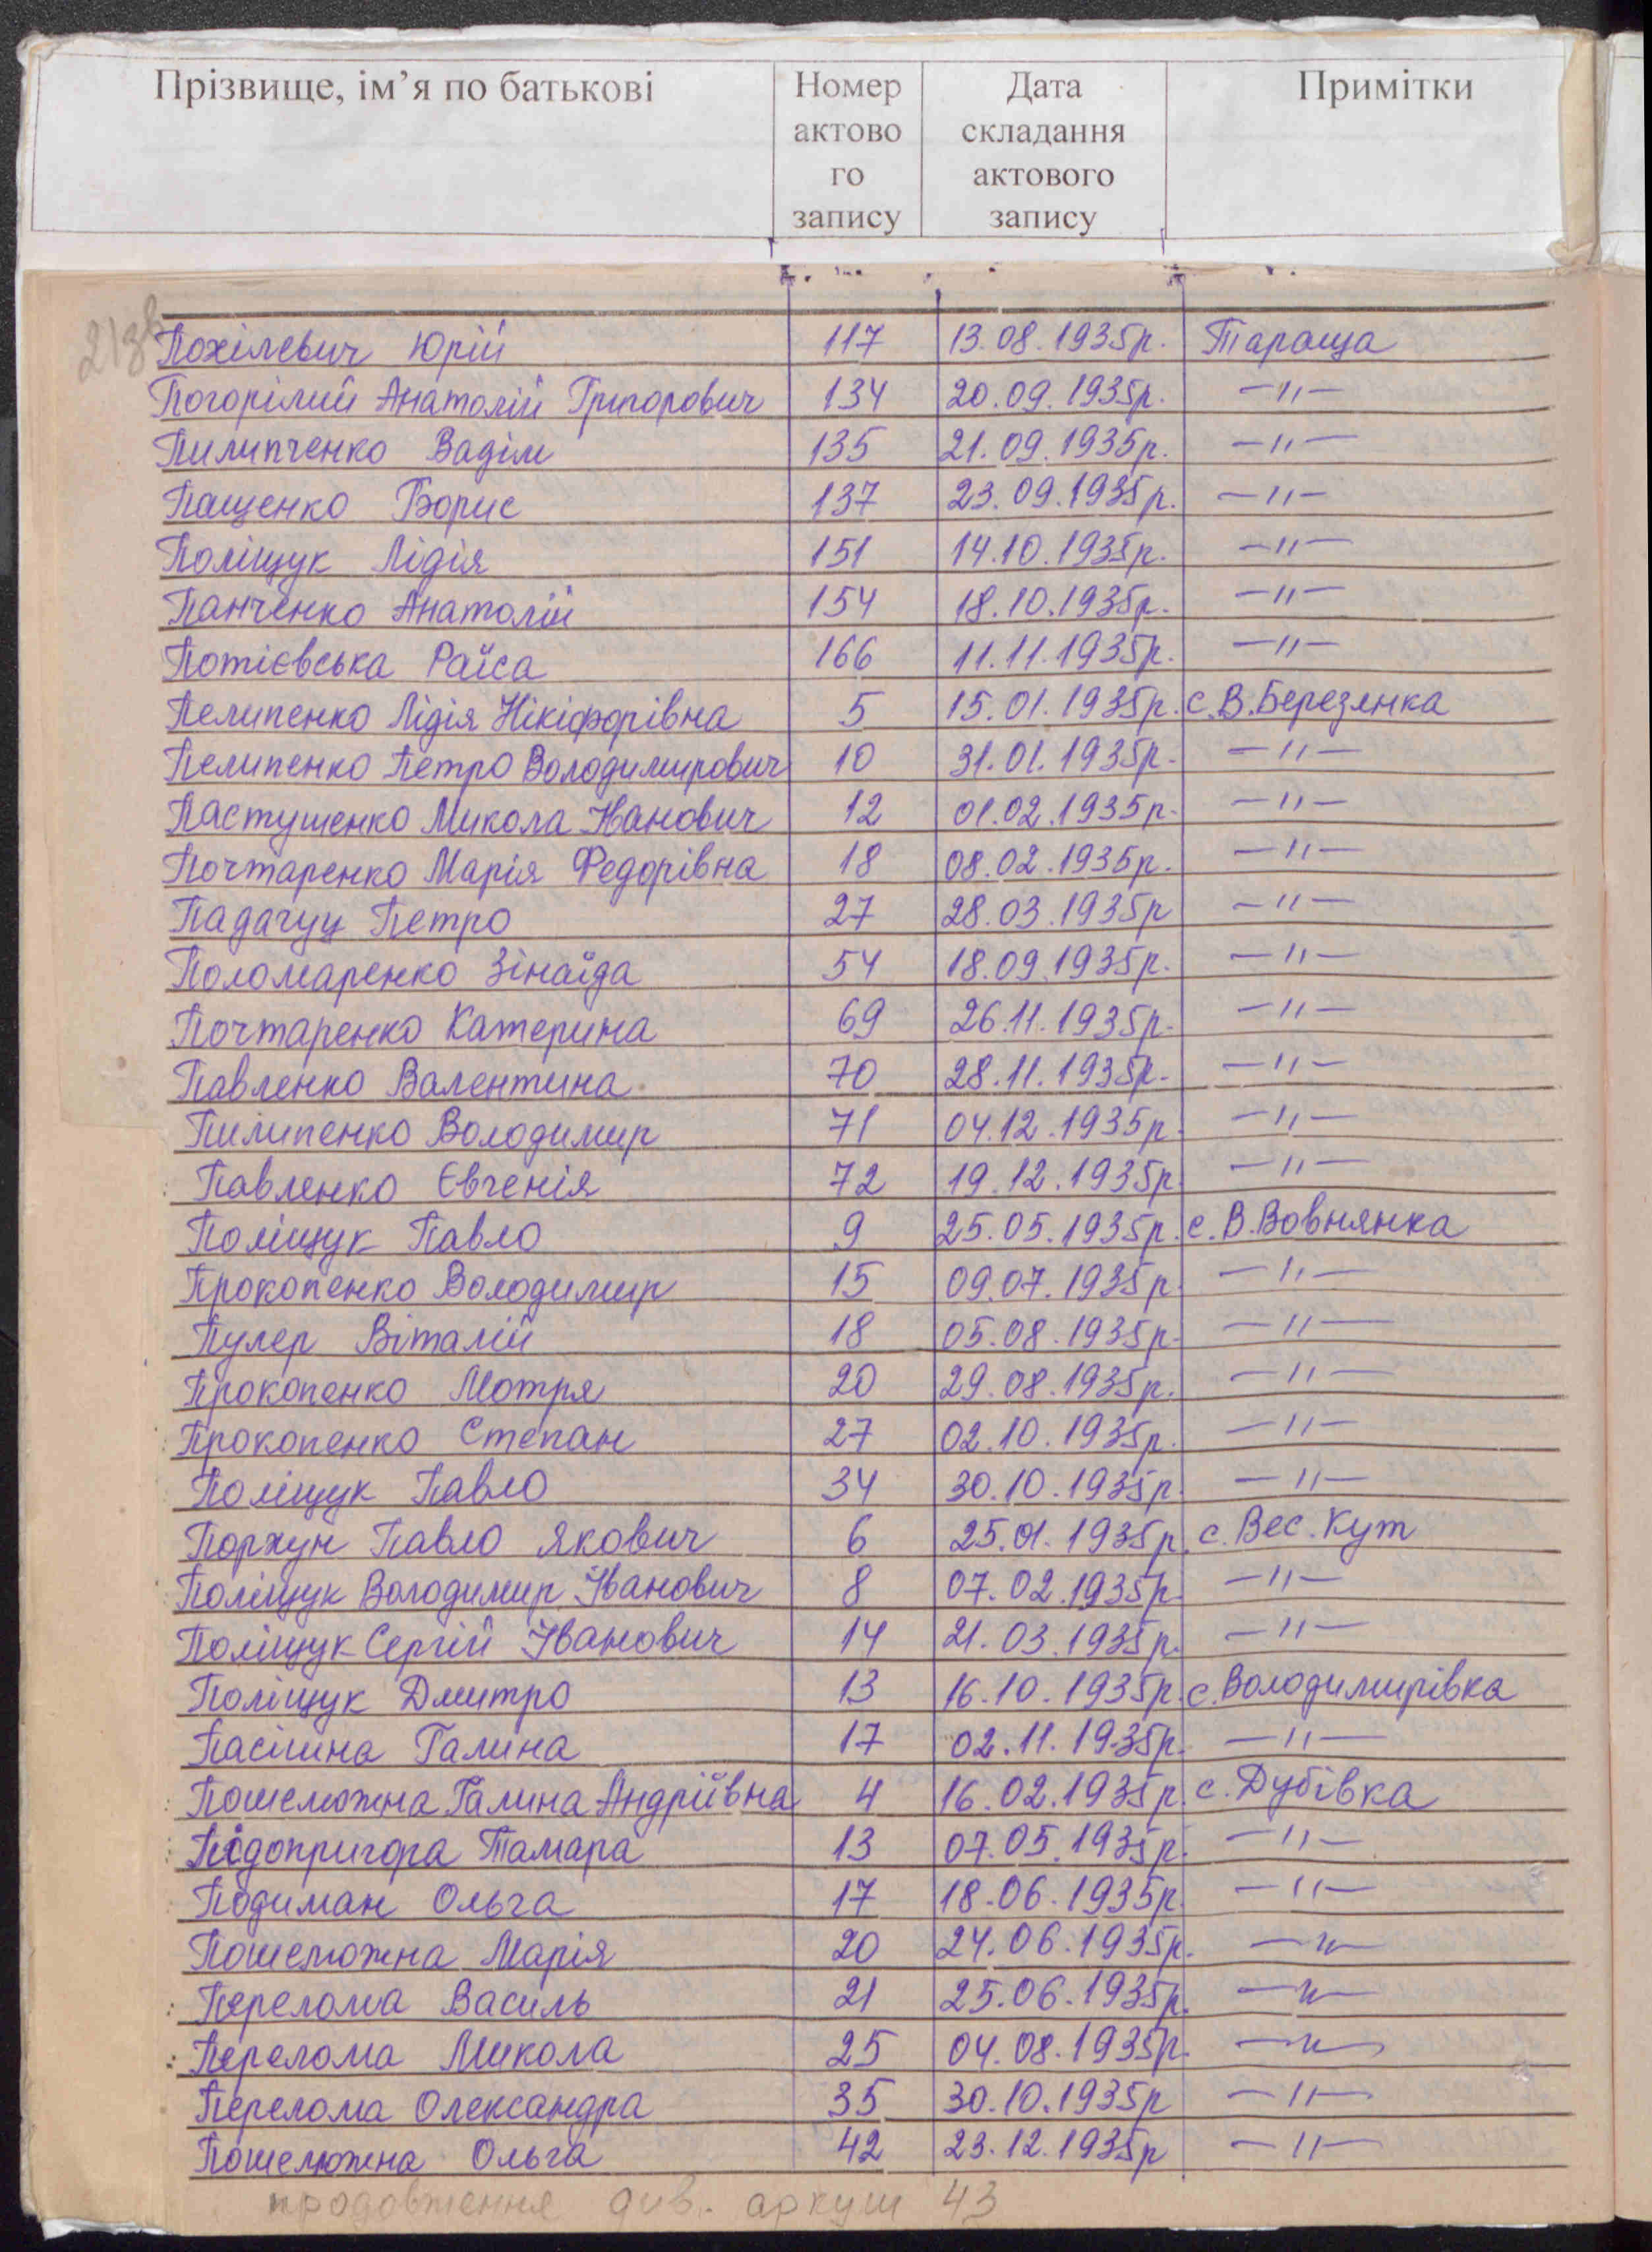 Прізвище, ім’я по батькові Номер актово го запису Дата складання актового запису Примітки
213в
Похілевич Юрій 117 13.08.1935р. Тараща
Погорілий Анатолій Григорович 134 20.09.1935р. —"—
Пилипченко Вадім 135 21.09.1935р. —"—
Пащенко Борис 137 23.09.1935р. —"—
Поліщук Лідія 151 14.10.1935р. —"—
Панченко Анатолій 154 18.10.1935р. —"—
Потієвська Раїса 166 11.11.1935р. —"—
Пелипенко Лідія Нікіфорівна 5 15.01.1935р. с.В.Березянка
Пелипенко Петро Володимирович 10 31.01.1935р. —"—
Пастушенко Микола Іванович 12 01.02.1935р. —"—
Почтаренко Марія Федорівна 18 08.02.1935р. —"—
Падачуц Петро 27 28.03.1935р —"—
Поломаренко Зінаїда 54 18.09.1935р. —"—
Почтаренко Катерина 69 26.11.1935р. —"—
Павленко Валентина 70 28.11.1935р. —"—
Пилипенко Володимир 71 04.12.1935р. —"—
Павленко Євгенія 72 19.12.1935р —"—
Поліщук Павло 9 25.05.1935р. с.В.Вовнянка
Прокопенко Володимир 15 09.07.1935р. —"—
Пулер Віталій 18 05.08.1935р. —"—
Прокопенко Мотря 20 29.08.1935р. —"—
Прокопенко Степан 27 02.10.1935р. —"—
Поліщук Павло 34 30.10.1935р. —"—
Порхун Павло Якович 6 25.01.1935р. с.Вес.Кут
Поліщук Володимир Іванович 8 07.02.1935р. —"—
Поліщук Сергій Іванович 14 21.03.1935р. —"—
Поліщук Дмитро 13 16.10.1935р. с.Володимирівка
Пасішна Галина 17 02.11.1935р. —"—
Пошеможна Галина Андріївна 4 16.02.1935р. с.Дубівка
Підопригора Тамара 13 07.05.1935р. —"—
Подиман Ольга 17 18.06.1935р. —"—
Пошеможна Марія 20 24.06.1935р. —"—
Перелома Василь 21 25.06.1935р. —"—
Перелома Микола 25 04.08.1935р. —"—
Перелома Олександра 35 30.10.1935р —"—
Пошеможна Ольга 42 23.12.1935р —"—
продовження див. аркуш 43